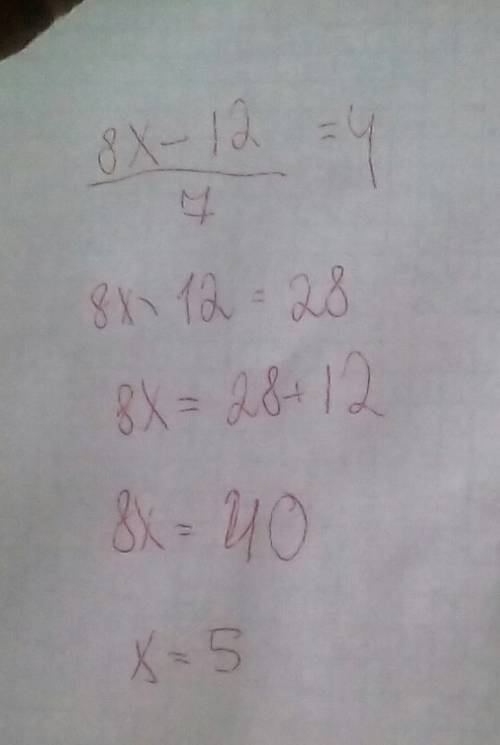 8x - 12 = 4
7
8x - 12 = 28
8x = 28 + 12
8x = 40
x = 5